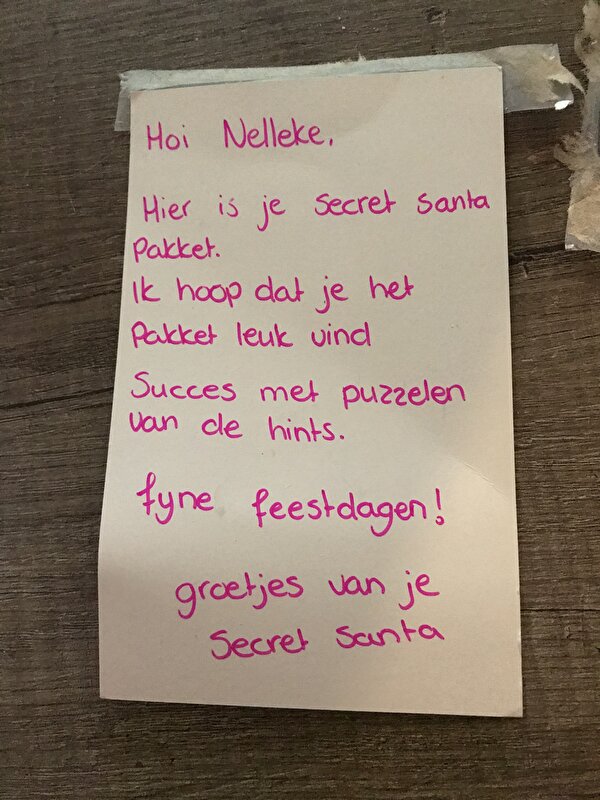 Hoi Nelleke,
Hier is je secret santa
pakket.
Ik hoop dat je het
pakket leuk vind
Succes met puzzelen
van de hints.
fyne feestdagen!
groetjes van je
Secret Santa